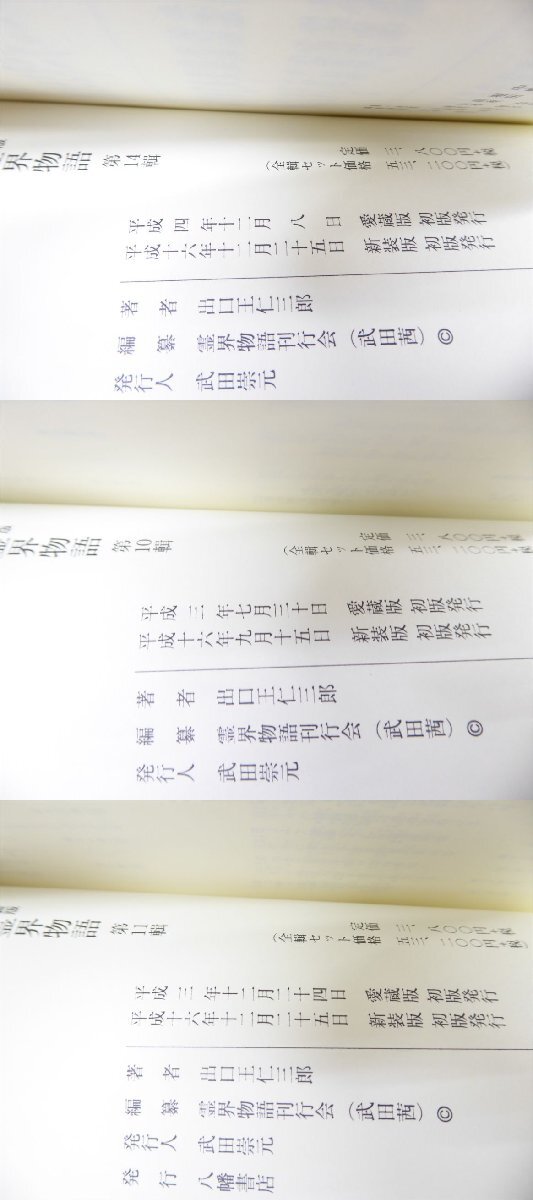 界物語 第14輯
定価 三、八〇〇円+税
(全輯セット価格 五三、二〇〇円+税)
平成四年十二月八日 愛蔵版 初版発行
平成十六年十二月二十五日 新装版 初版発行
著者 出口王仁三郎
編纂 霊界物語刊行会(武田茜)©
発行人 武田崇元
霊界物語 第10輯
定価 三、八〇〇円+税
(全輯セット価格 五三、二〇〇円+税
平成三年七月三十日 愛蔵版 初版発行
平成十六年九月十五日 新装版 初版発行
著者 出口王仁三郎
編纂 霊界物語刊行会(武田茜)©
発行人 武田崇元
霊界物語 第11輯
定価 三、八〇〇円+税
(全輯セット価格 五三、二〇〇円+税)
平成三年十二月二十四日 愛蔵版 初版発行
平成十六年十二月二十五日 新装版 初版発行
著者 出口王仁三郎
編纂 霊界物語刊行会(武田茜)©
発行人 武田崇元
発行 八幡書店